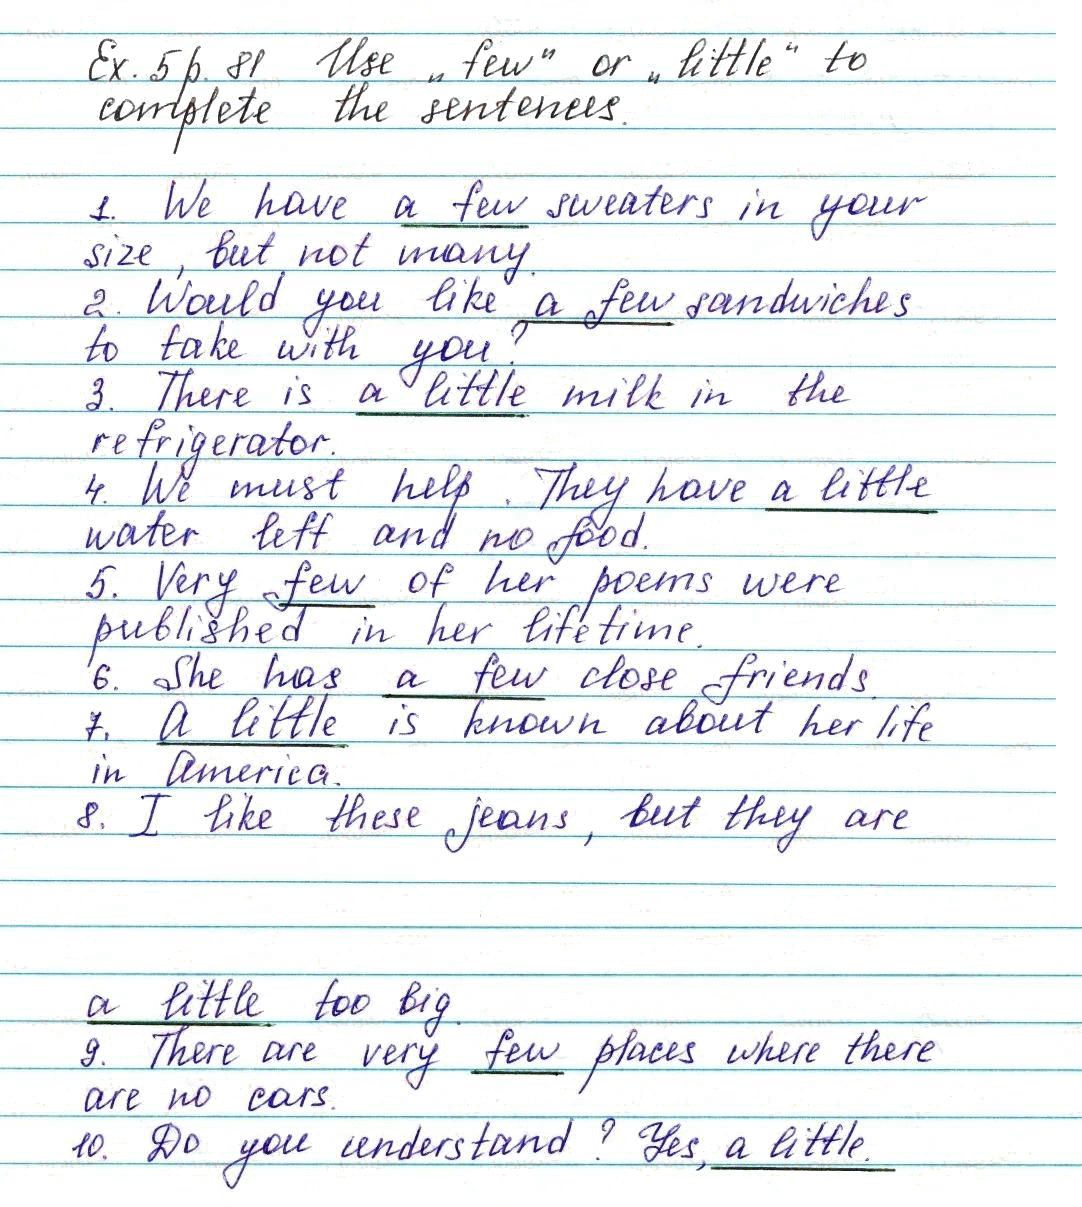 Ex. 5 p. 81 Use „few“ or „little“ to
complete the sentences.
1. We have a few sweaters in your
size, but not many.
2. Would you like a few sandwiches
to take with you?
3. There is a little milk in the
refrigerator.
4. We must help. They have a little
water left and no food.
5. Very few of her poems were
published in her lifetime.
6. She has a few close friends.
7. A little is known about her life
in America.
8. I like these jeans, but they are
a little too big.
9. There are very few places where there
are no cars.
10. Do you understand? Yes, a little.